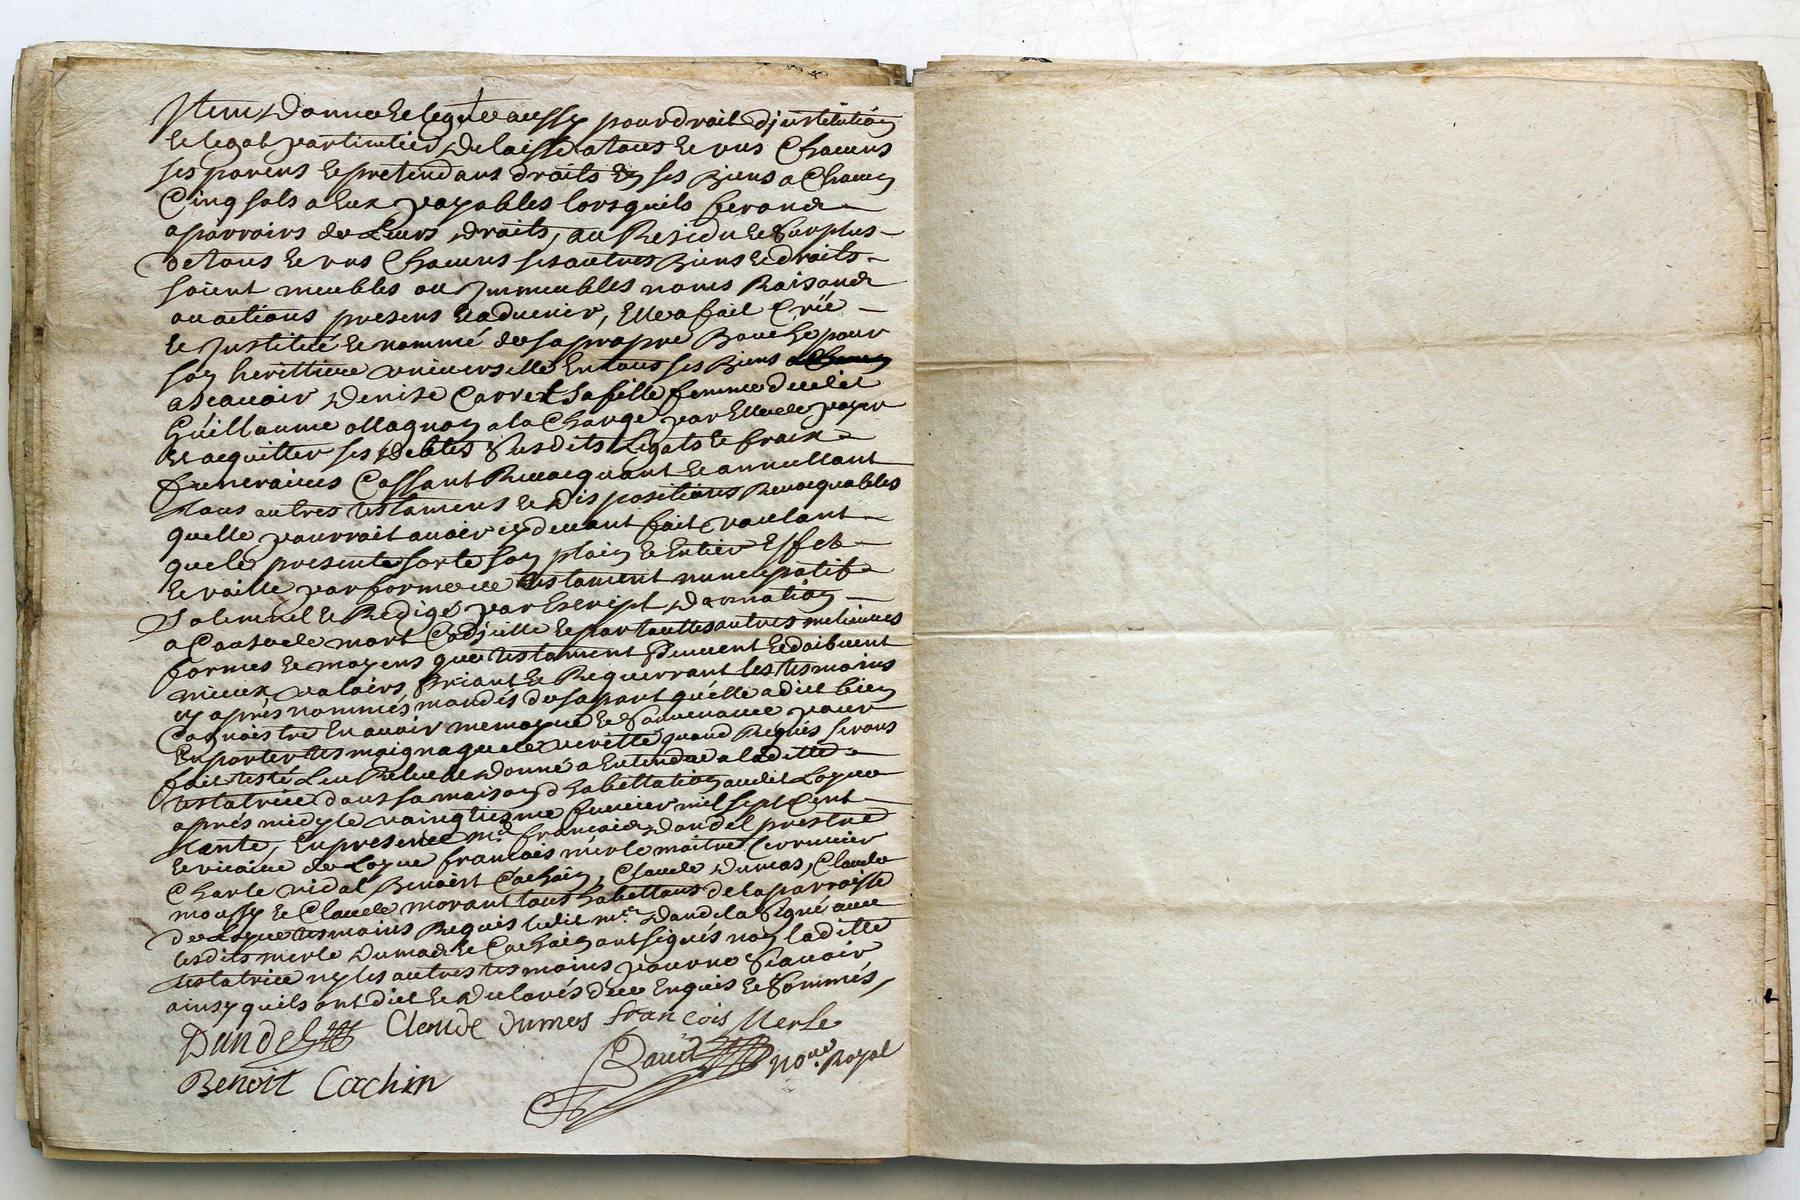 Item donne et legue aussy pour droit d'jnstitution
et legat particulier, delaisse a tous et vns Chacuns
ses parens et pretendans droits en ses Biens a Chacun
Cinq sols a Eux payables lorsquils feront
aparroirs de Leurs droits, au Residu et surplus
de tous et vns Chacuns ses autres Biens et droits
soient meubles ou Jmmeubles noms Raisons
ou actions presens et aduenir, Elle a fait Créé
et Jnstitué et nommé de sa propre Bouche pour
son herittiere vniverselle En tous ses Biens
a scauoir Denise Carret sa fille femme dudit
Guillaume ollagnon a la Charge par Elle de payer
et acquitter ses debtes susdits Legats et fraix
funeraires Cassant Reuocquant et annullant
tous autres testamens et dispositions Reuocquables
quelle pourroit auoir cy deuant fait voulant
que le presente sorte son plain et Entier Effet
et vaille par forme de testament nuncupatif
solemnel et Redigé par Escript, donnation
a Cause de mort Codjcille et par touttes autres meilieures
formes et moyens que testament Peuuent et doibuent
mieux valoirs, Priant et Requerrant les tesmoins
cy aprés nommés mandés de sa part qu'elle a dit bien
Cognoistre En auoir memoyre et souuenance pour
En porter tesmoignage de veritté quand Requis serons
fait testé Leu Releu et donné a Entendre a laditte
testatrice dans sa maison d'habittation audit Logue
aprés midy le vaingtiesme feurier mil sept Cent
trante, En presence mre francois Dandel prestre
et vicaire de Logue francois merle maitre serrurier
Charle vidal Benoist Cachin, Claude Dumas, Claude
moussy et Claude morant tous habittans de la parroisse
de Logue tesmoins Requis ledit mre Dandel a signé auec
lesdits merle Dumas et Cachin ont signés non laditte
testatrice ny les autres tesmoins pour ne scauoir
ainsy quils ont dit et declarés de ce Enquis et sommés,
Dandel Claude dumas francois Merle
Benoit Cachin Dauid nore Royal